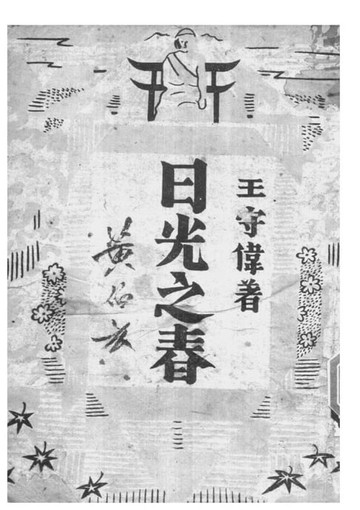 王守偉著
日光之春
黃